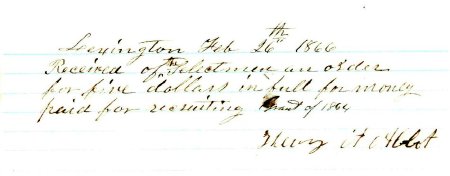 Lexington Feb 26th 1866
Received of the Selectmen an order
for five dollars in full for money
paid for recruiting of 1864
Henry A Abbot